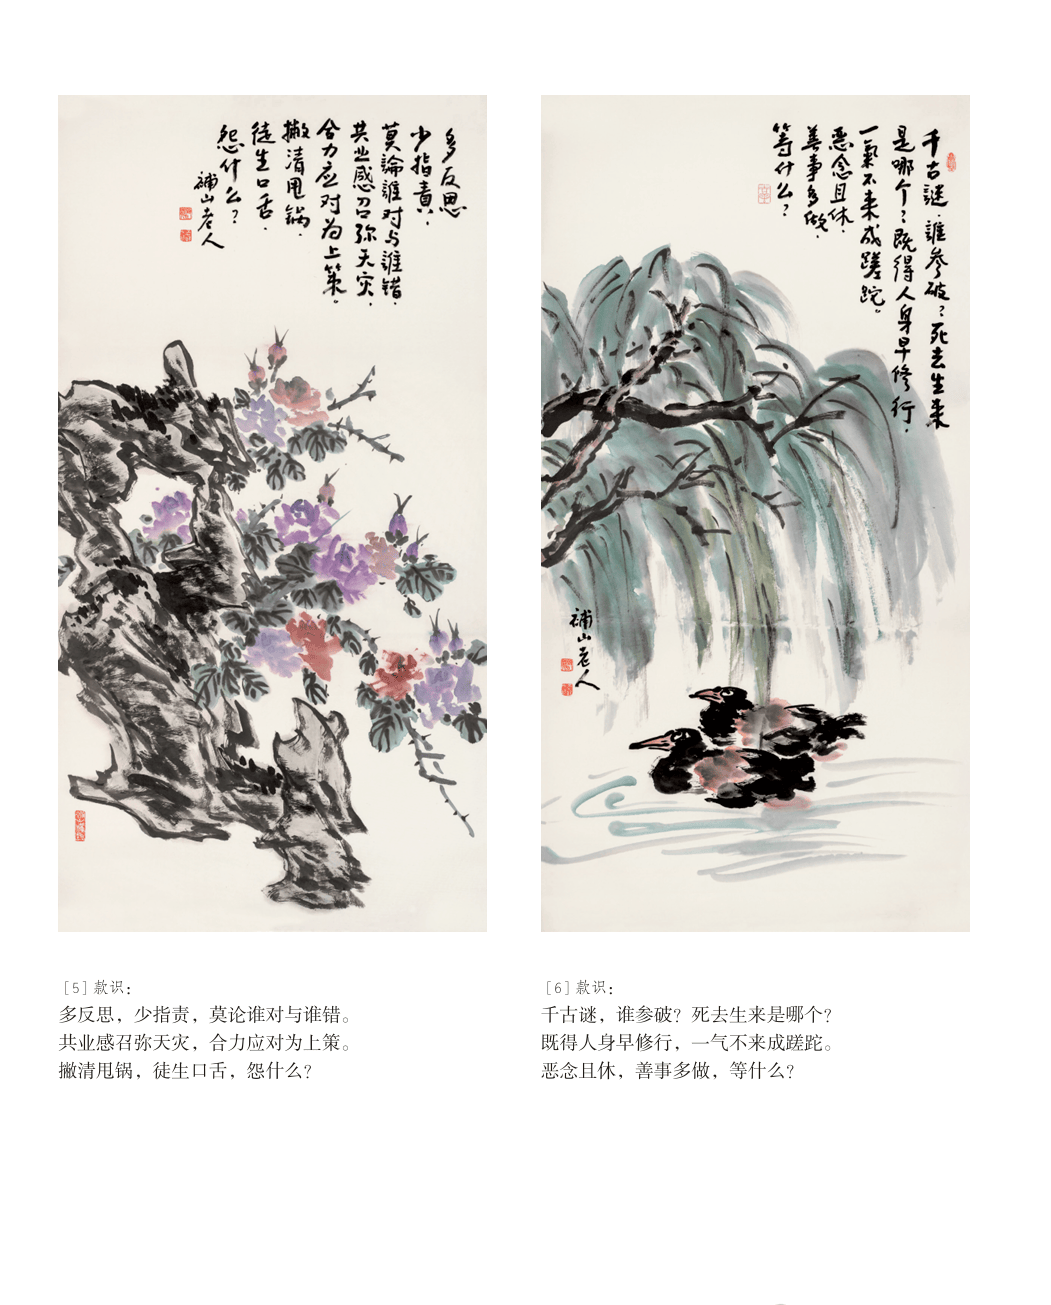 多反思
少指責，
莫論誰对与誰错．
共业感召弥天灾．
合力应对为上策。
撇清甩锅．
徒生口舌．
怨什么？
補山老人
千古謎．誰參破？死去生来
是哪个？既得人身早修行．
一氣不来成蹉跎。
恶念且休．
善事多做．
等什么？
補山老人
［5］款识：
多反思，少指责，莫论谁对与谁错。
共业感召弥天灾，合力应对为上策。
撇清甩锅，徒生口舌，怨什么？
［6］款识：
千古谜，谁参破？死去生来是哪个？
既得人身早修行，一气不来成蹉跎。
恶念且休，善事多做，等什么？